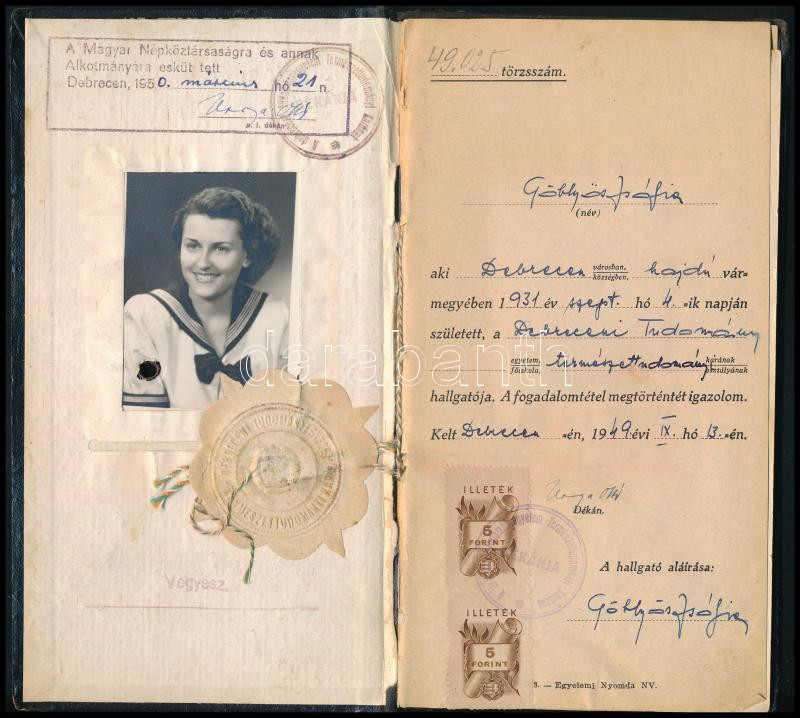 A Magyar Népköztársaságra és annak
Alkotmányára esküt tett
Debrecen, 1950. március hó 21 n.
p. t. dékán
DÉKÁNJA
Vegyész
49.025 törzsszám.
Göblyös Zsófia
(név)
aki Debrecen városban, községben, hajdú vár-
megyében 1931 év szept. hó 4.-ik napján
született, a Debreceni Tudomány
egyetem, főiskola, természettudomány karának osztályának
hallgatója. A fogadalomtétel megtörténtét igazolom.
Kelt Debrecen -én, 1949 évi IX. hó 13.-én.
Dékán.
ILLETÉK
5
FORINT
DÉKÁNJA
A hallgató aláírása:
Göblyös Zsófia
ILLETÉK
5
FORINT
3. — Egyetemi Nyomda NV.
darabanth